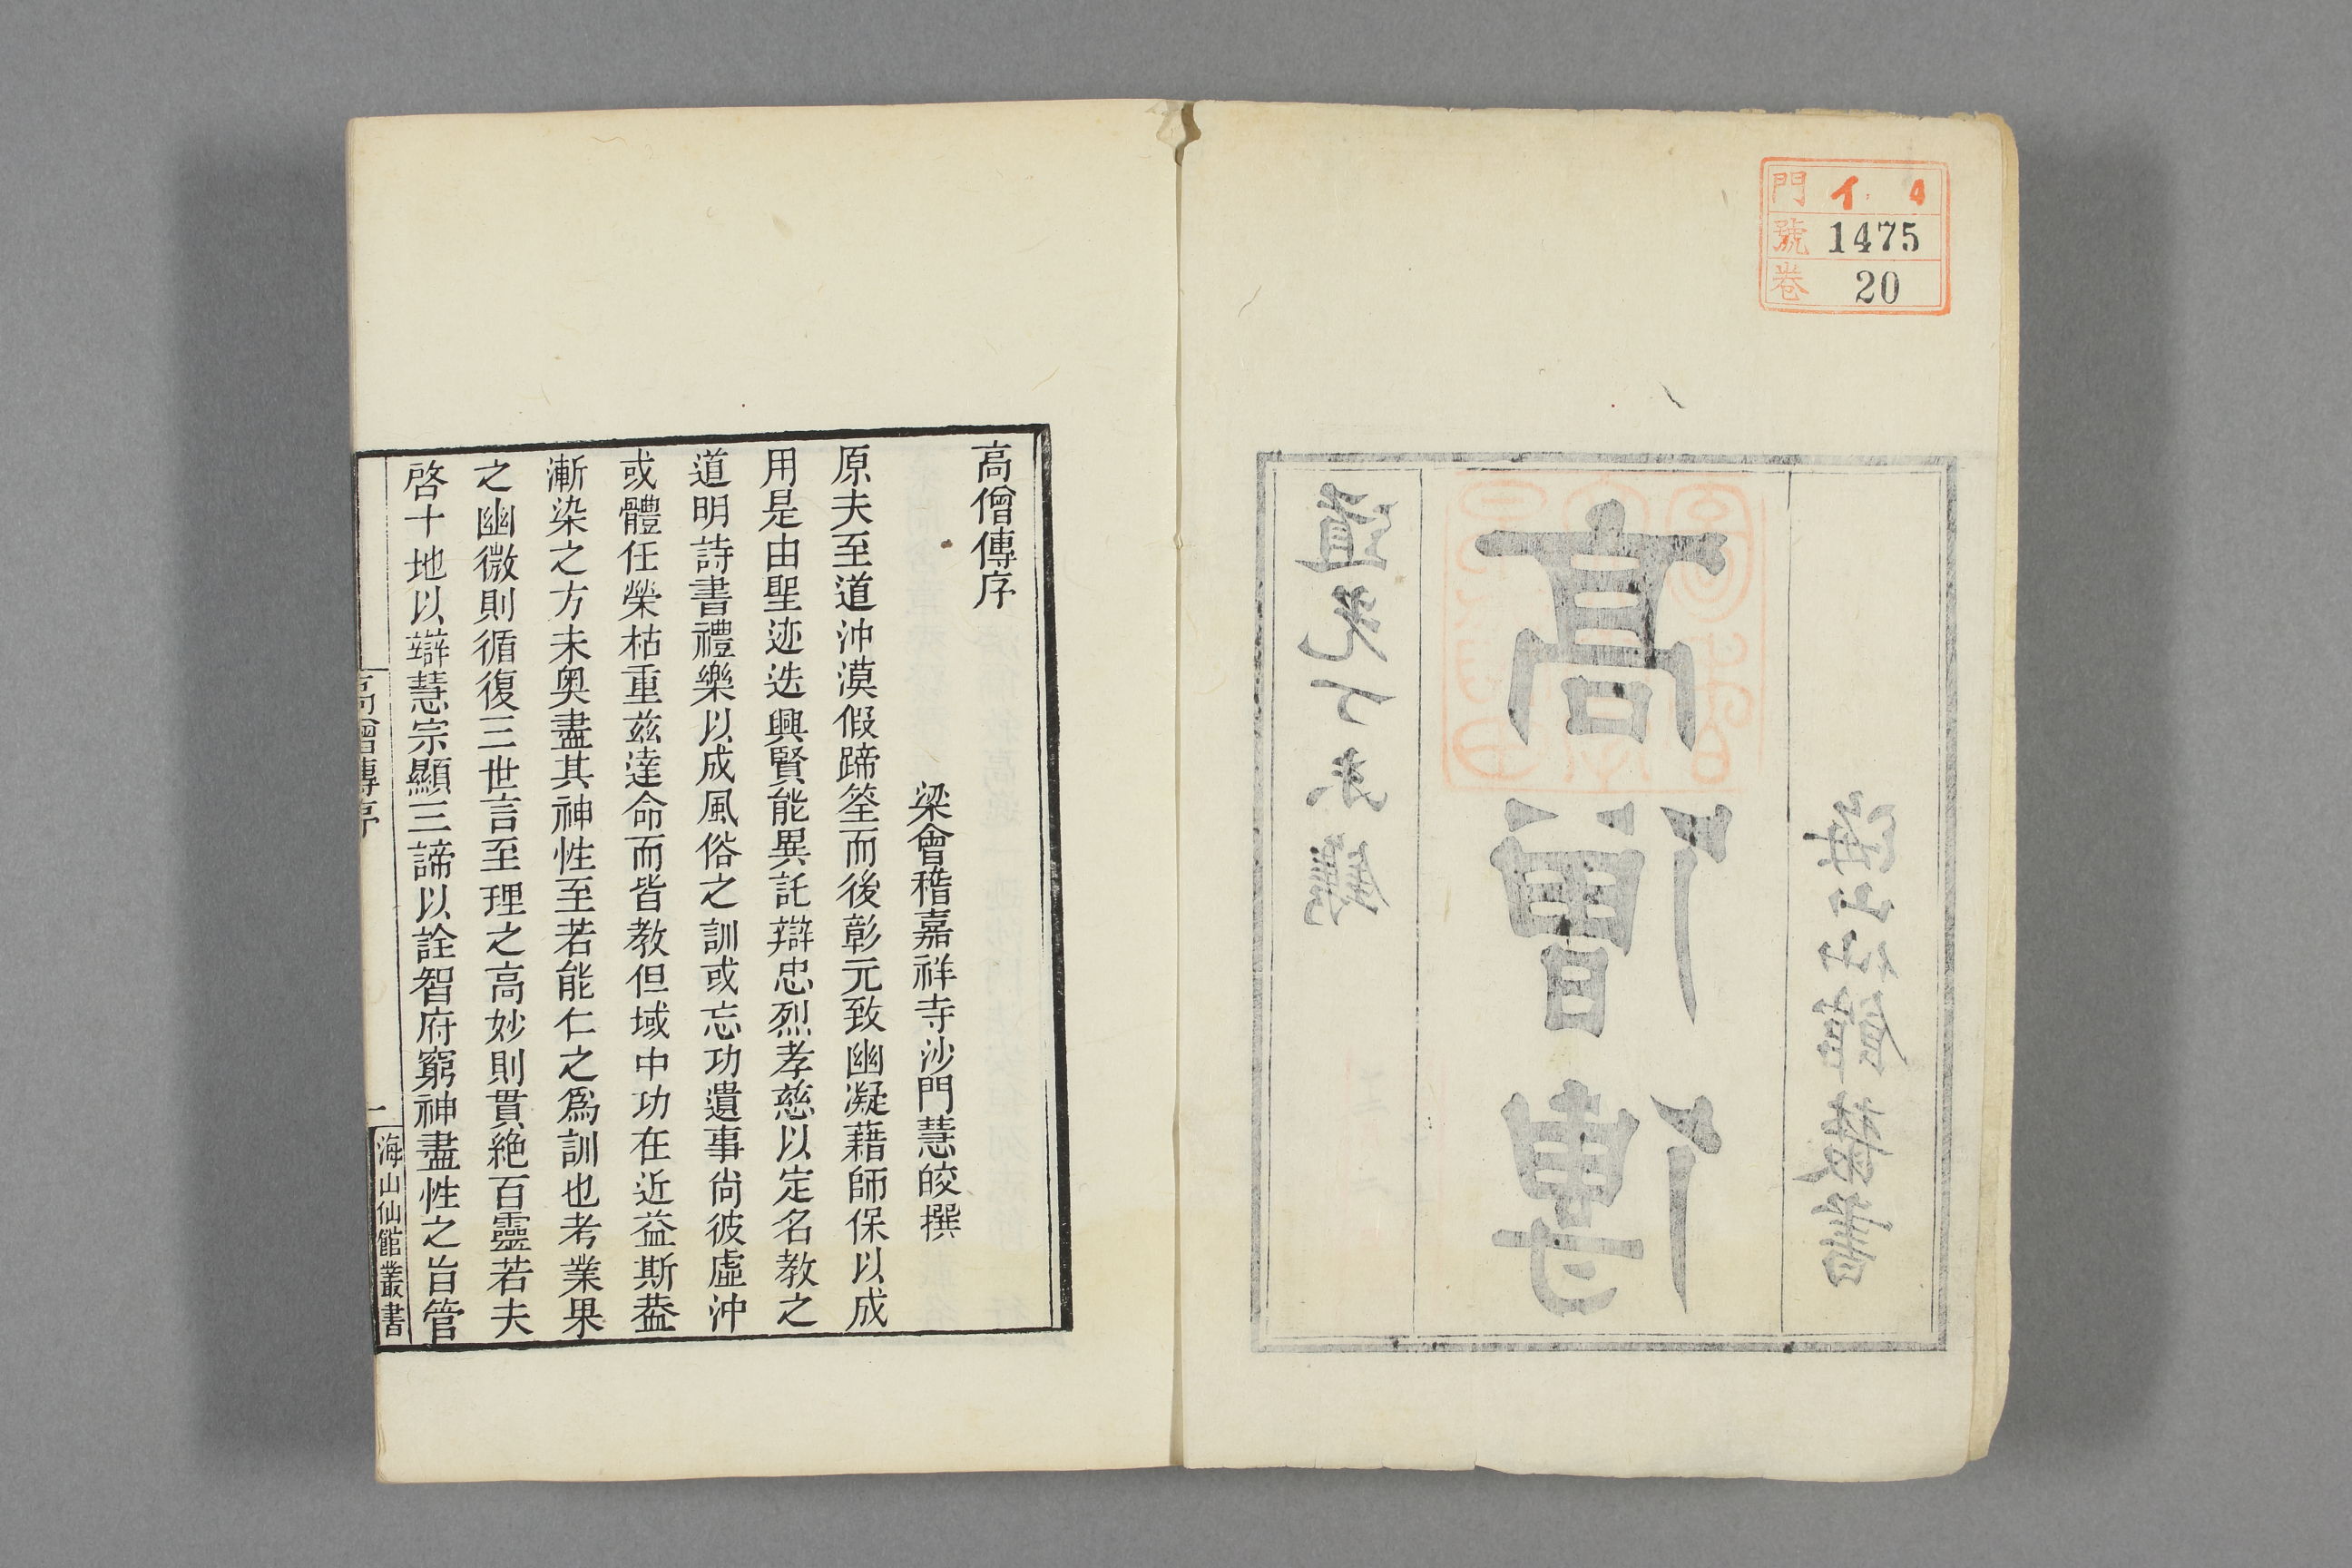 門 イ 4
號 1475
卷 20
海山仙館叢書
高僧傳
道光
鐫
高僧傳序
梁會稽嘉祥寺沙門慧皎撰
原夫至道沖漠假蹄筌而後彰元致幽凝藉師保以成
用是由聖迹迭興賢能異託辯忠烈孝慈以定名教之
道明詩書禮樂以成風俗之訓或忘功遺事尙彼虛沖
或體任榮枯重茲達命而皆教但域中功在近益斯葢
漸染之方未奥盡其神性至若能仁之爲訓也考業果
之幽微則循復三世言至理之高妙則貫絶百靈若夫
啓十地以辯慧宗顯三諦以詮智府窮神盡性之旨管
高僧傳序
一
海山仙館叢書